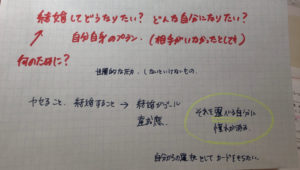 結婚してどうなりたい? どんな自分になりたい?
自分自身のプラン。(相手がいなかったとしても)
何のために?
世間的な圧力。しないといけないもの。
ヤセること、結婚すること → 結婚がゴール
それを選べる自分に
憧れがある。
自分からの選択としてカードをもちたい。